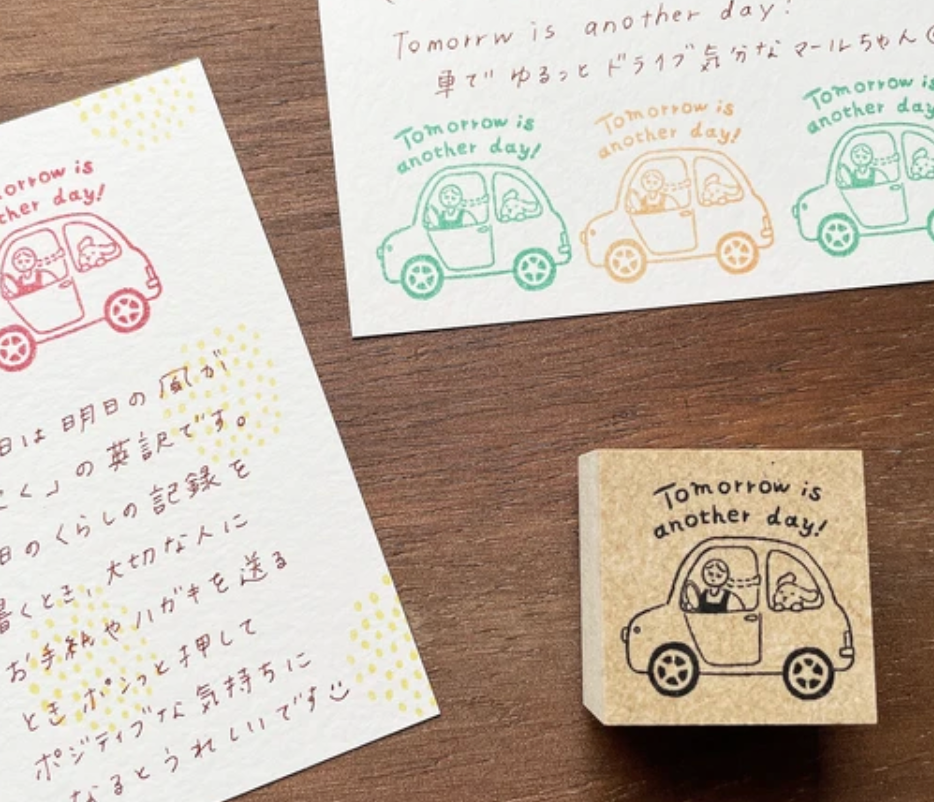 Tomorrw is another day!
車で ゆるっと ドライブ気分な マールちゃん
Tomorrow is
another day!
Tomorrow is
another day!
Tomorrow is
another day
morrow is
other day!
日は 明日の 風が
く」の 英訳です。
日の くらしの 記録を
書くとき、大切な人に
お手紙や ハガキを 送る
とき ポンっと 押して
ポジティブな 気持ちに
なると うれしいです
Tomorrow is
another day!